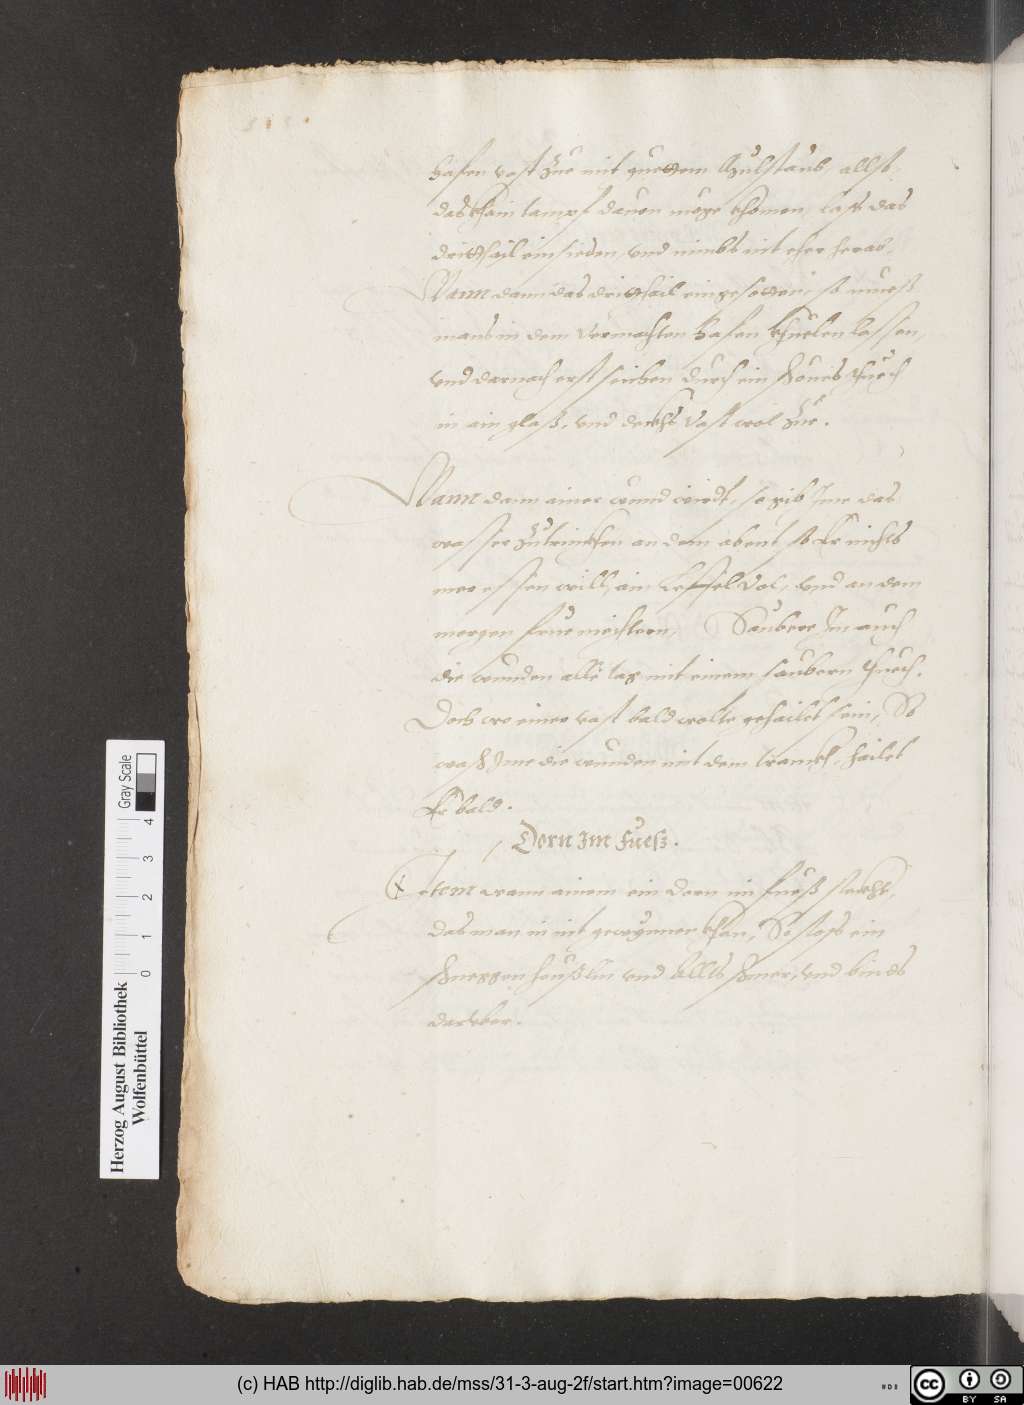 hafen vast zue mit guettem
das khain dampf dauon müge khomen, lass das
dritthail einsieden, vnd nimbs nit eher herab,
Wann dann das dritthail eingesotten, so mueß
mans in dem vermachten hafen khuelen lassen,
vnd darnach erst seichen durch ein schönes thuech
in ain glaß, vnd deckhs vast wol zue.
Wann dann ainer wund wirdt, so gib Ime das
wasser zutrinckhen an dem abent so Er nichts
mer essen will, ain Leffel vol, vnd an dem
morgen frue niechtern, Saubere Im auch
die wunden alle tag mit einem saubern thuech.
Doch wo einer vast bald wolte gehailet sein, So
wasch Ime die wunden mit dem tranckh, hailet
Er bald.
Dorn Im Fueß.
Item wann ainem ein dorn im fueß steckht,
das man in nit gewynnen khan, So stoss ein
Schneggen heußlin vnd allts Schmer, vnd bind es
darüber.
Gray Scale
0 1 2 3 4
Herzog August Bibliothek
Wolfenbüttel
(c) HAB http://diglib.hab.de/mss/31-3-aug-2f/start.htm?image=00622
cc BY SA